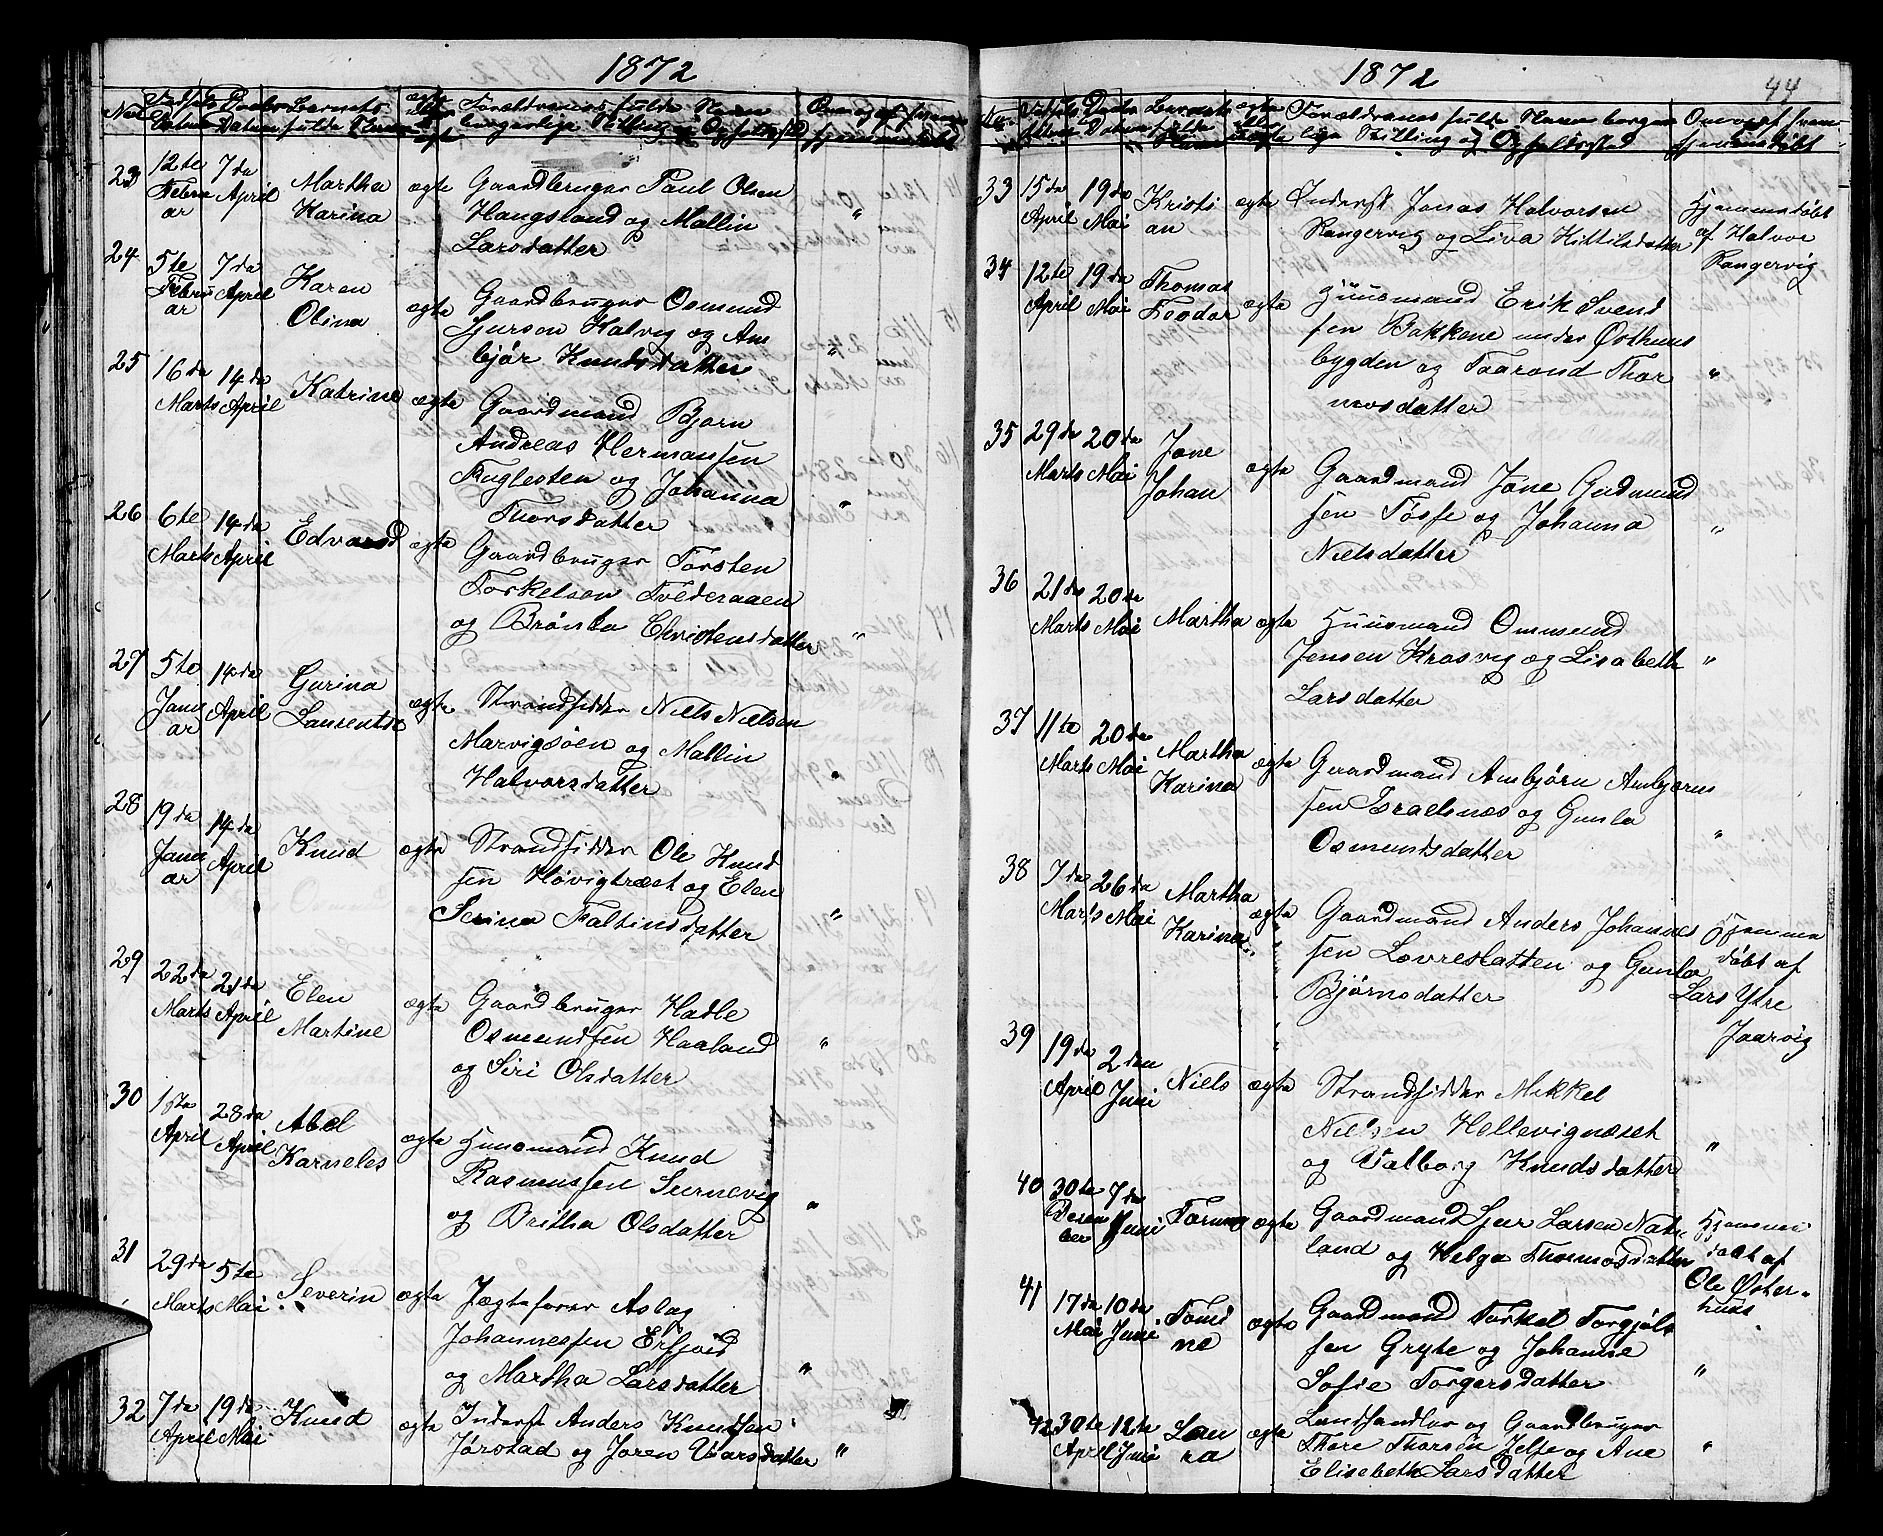 1872
No Fødsels Datum Daabs Datum Barnets fulde Navn ægte eller uægte Forældrenes fulde Navn borgerlige Stilling og Opholdssted Om og af hvem hjemmedøbt
23 12te Februar 7da April Martha Karina ægte Gaardbruger Paul Olsen
Haugsland og Mallin
Larsdatter "
24 5te Februar 7da April Karen Olina ægte Gaardbruger Osmund
Sjursen Kalvig og Am
bjør Knudsdatter "
25 16da Marts 14da April Katrine ægte Gaardmand Bjørn
Andreas Hermansen
Fuglesten og Johanna
Thorsdatter "
26 6te Marts 14da April Edvard ægte Gaardbruger Torsten
Torkelsen Tvederaaen
og Brønla Christensdatter "
27 5te Januar 14da April Gurina Laurentse ægte Strandsidder Niels Nielsen
Marvigsøen og Mallin
Halvorsdatter "
28 19da Januar 14da April Knud ægte Strandsidder Ole Knud
sen Høvigtræet og Elen
Serina Faltinsdatter "
29 22da Marts 21da April Elen Martine ægte Gaardbruger Hadle
Osmundsen Haaland
og Siri Olsdatter "
30 1sta April 28da April Abel Karneles ægte Huusmand Knud
Rasmussen Surnevig
og Britha Olsdatter "
31 29da Marts 5te Mai Severin ægte Jægtefører Aslag
Johannessen Erfjord
og Martha Larsdatter "
32 7da April 19da Mai Knud ægte Inderst Anders Knudsen
Jørstad og Joren Vaarsdatter "
1872
44
No Fødsels Datum Daabs Datum Barnets fulde Navn ægte eller uægte Forældrenes fulde Navn borger
lige Stilling og Opholdssted Om og af hvem hjemmedøbt
33 15da April 19da Mai Kristian ægte Inderst Jonas Halvorsen
Rangervig og Liva Kittilsdatter Hjemmedøbt af Halvor Rangervig
34 12te April 19da Mai Thomas Feodor ægte Huusmand Erik Svend
sen Bakkene under Østhuus
bygden og Taarond Thor
mosdatter "
35 29da Marts 20da Mai Jone Johan ægte Gaardmand Jone Gudmund
sen Tøsse og Johanna
Nielsdatter "
36 21da Marts 20da Mai Martha ægte Huusmand Ommund
Jensen Krosvig og Lisabeth
Larsdatter "
37 11te Marts 20da Mai Martha Karina ægte Gaardmand Ambjørn Ambjørns
sen Israelsnæs og Gunla
Osmundsdatter "
38 7da Marts 26da Mai Martha Karina ægte Gaardmand Anders Johannes
sen Lovresletten og Gunla
Bjørnsdatter Hjemmedøbt af Lars Ytre Jaarvig
39 19da April 2den Juni Niels ægte Strandsidder Mikkel
Nielsen Hellevignæset
og Valborg Knudsdatter "
40 30te Desember 7da Juni ægte Gaardmand Sjur Larsen Nat
land og Helga Thormosdatter Hjemmedøbt af Ole Østerhuus
41 17da Mai 10da Juni Tomine ægte Gaardmand Torkel Torgjøls
sen Gryte og Johanne
Sofie Torgersdatter "
42 30te April 12te Juni Laura ægte Landhandler og Gaardbruger
Thore Thorsen Jelse og Ane
Elisebeth Larsdatter "